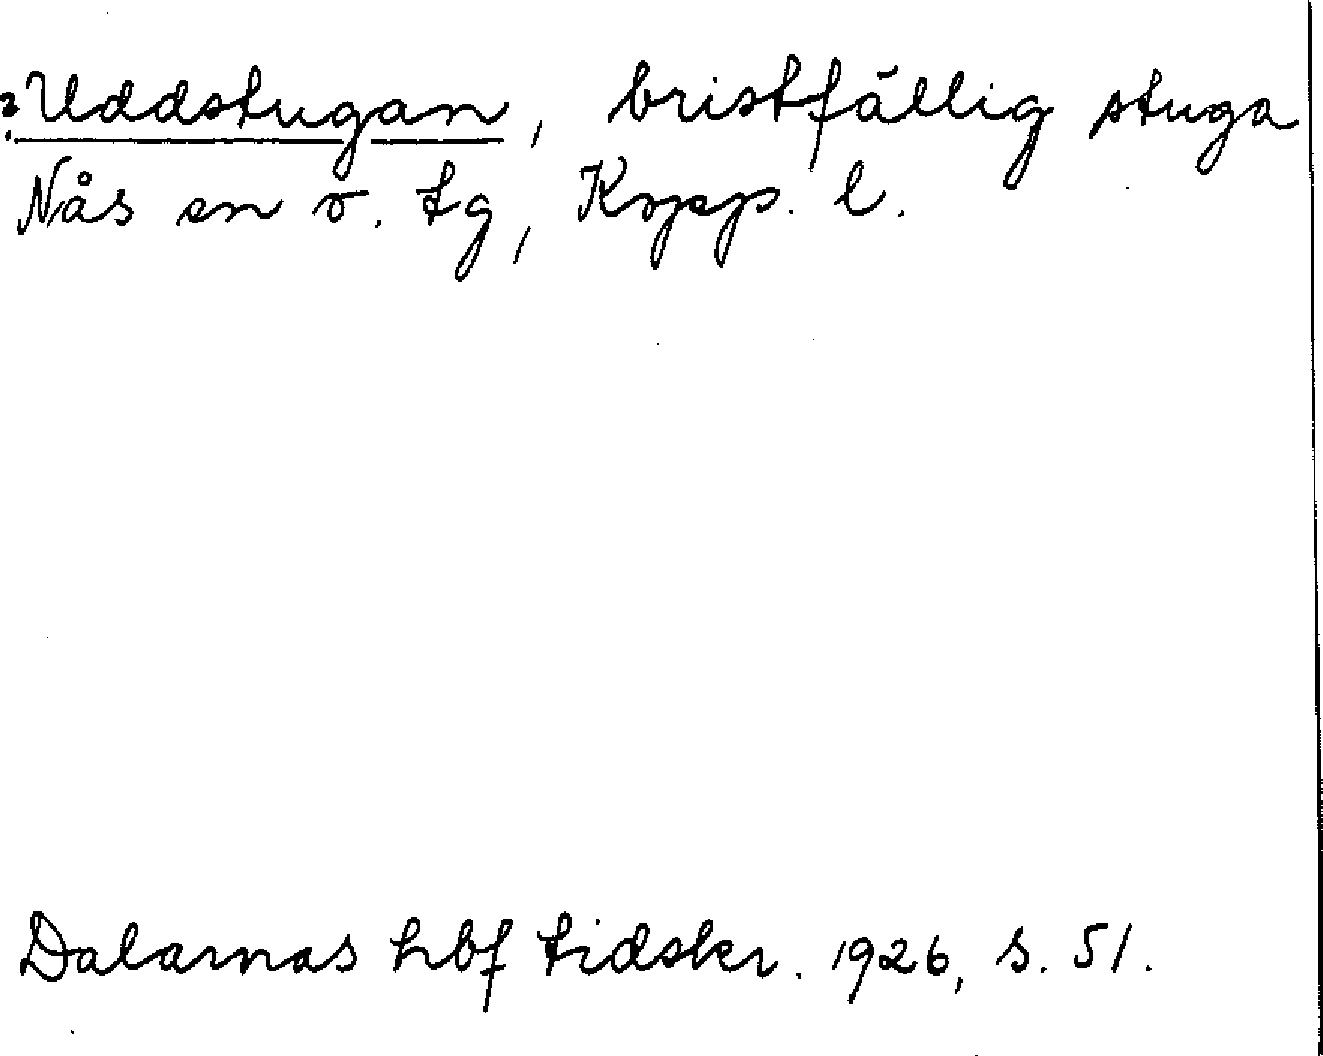 ?Uddstugan, bristfällig stuga
Nås sn o. tg, Kopp. l.
Dalarnas hbf tidskr. 1926, s. 51.